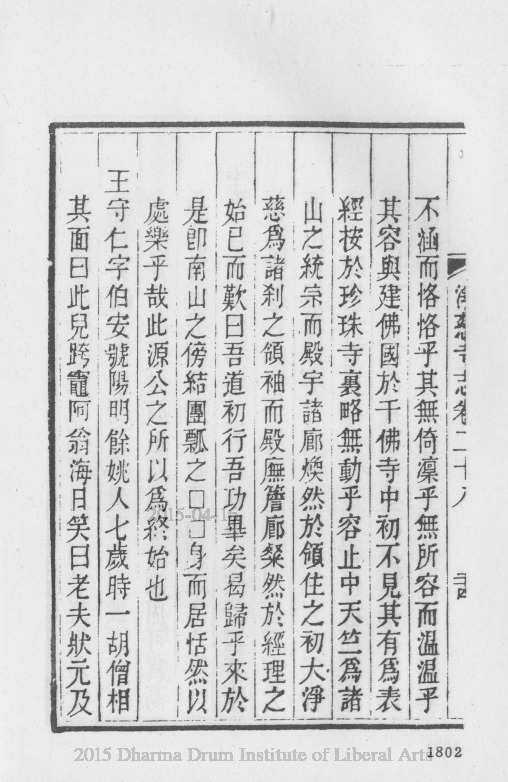 淨慈寺志卷二十八
不涵而恪恪乎其無倚凜乎無所容而溫溫乎
其容與建佛國於千佛寺中初不見其有為表
經按於珍珠寺裏略無動乎容止中天竺為諸
山之統宗而殿宇諸廊煥然於領住之初大淨
慈為諸刹之領袖而殿廡簷廊粲然於經理之
始已而歎曰吾道初行吾功畢矣曷歸乎來於
是卽南山之傍結團瓢之□□身而居恬然以
處樂乎哉此源公之所以為終始也
王守仁字伯安號陽明餘姚人七歲時一胡僧相
其面曰此兒跨竈阿翁海日笑曰老夫狀元及
2015-04-15
2015 Dharma Drum Institute of Liberal Arts
1802